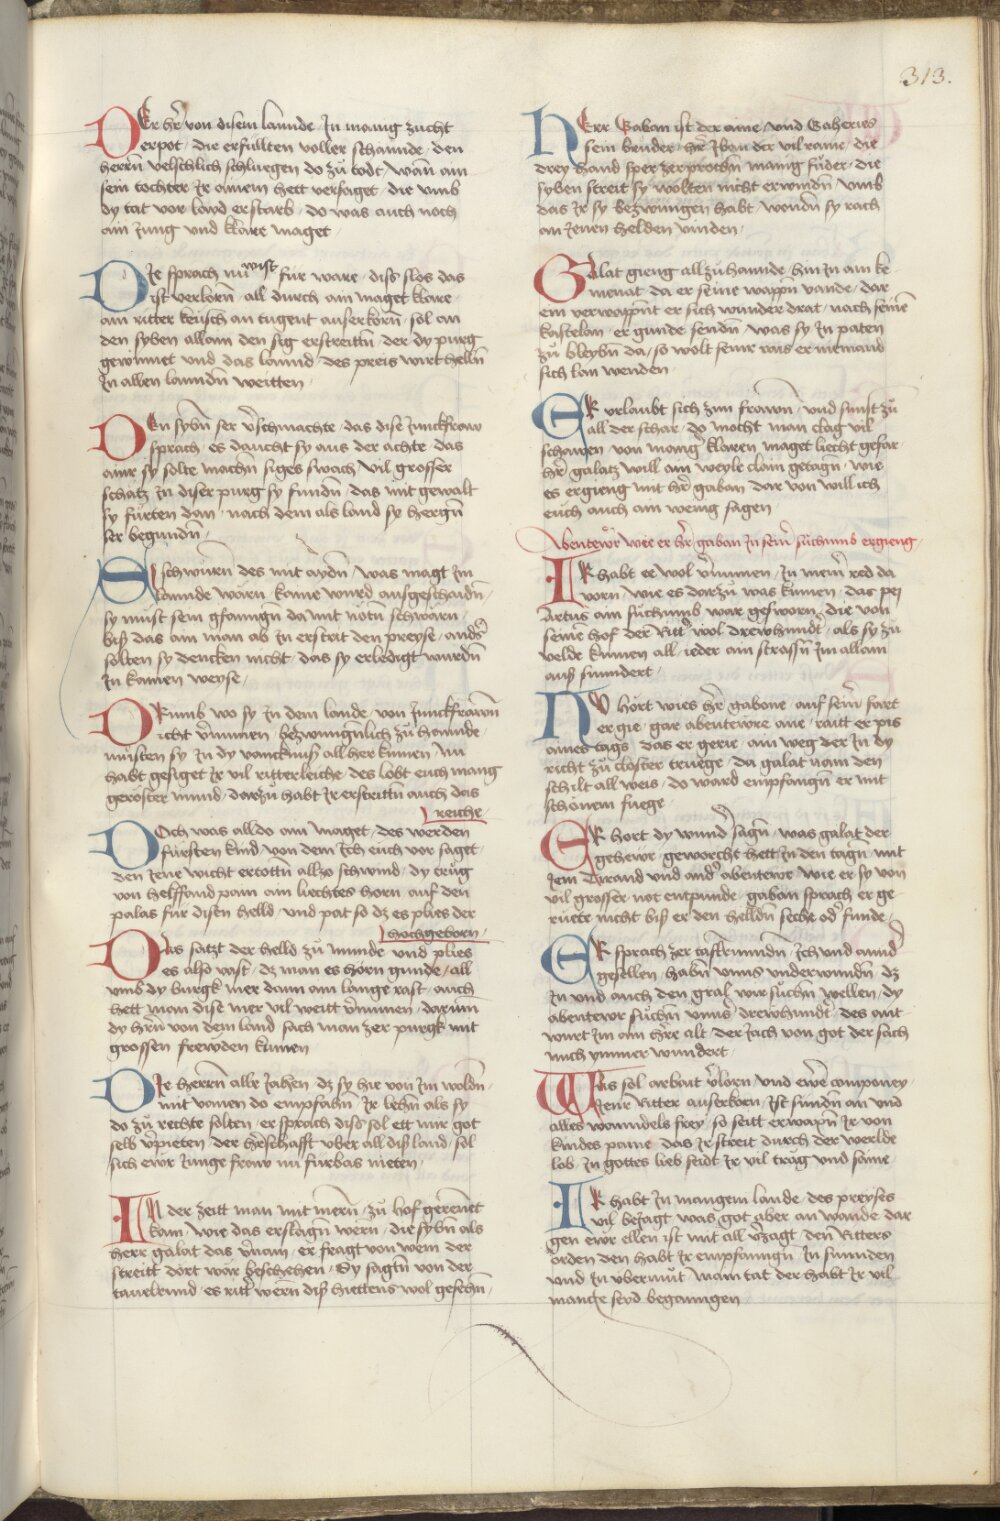 313.
DEr hr̄ von disem lannde in manig zucht
erpot / die erfullten voller schannde / den
herrn̄ velschlich schluegen do zu todt / wann am
sein tochter Ir ainem hett versaget / die vmb
dy tat vor land erstarb / do was auch noch
ain Jung vnd klare maget /
DIe sprach nu wist fur ware / diss slos das
ist verlorn̄ / all durch ain maget klare
ain ritter keusch an tugent auserkorn̄ / sol an
den syben allain den sig erstreittn̄ / der dy purg
gewinnet vnd das lannd / des preis wirt helln̄
In allen lanndn̄ weitten /
DEn sybn̄ ser v̄schmachte / das dise Junckfraw
sprach / es daucht sy aus der achte / das
ainr sy solte machn̄ siges swach / vil grosser
schatz In diser purg sy fundn̄ / das mit gewalt
sy fuerten dan / nach dem als land sy hergn̄
ser begundn̄ /
SI schwuren des mit aydn̄ / was magt Im
lannde warn̄ / kaine wurd ausgeschaidn̄ /
sy must sein gfanngn̄ da mit notn̄ schwarn̄ /
biss das ain man ab In erstreit den preyse / annds
solten sy dencken nicht / das sy erledigt wurdn̄
In kainen weyse /
DArumb wo sy In dem lande / von Junckfrawn̄
icht v̄nnmen / bezwungnlich zu hannde
muesten sy In dy vancknuss all her kumen / Nu
habt gesiget Ir vil ritterleiche / des lobt euch manig
geroster mund / darzu habt Ir erstrittn̄ auch das
reiche /
DOch was alldo ain maget / des werden
fursten kind / von dem Ich euch vor saget
den Jene wicht ertottn̄ allzo schwind / dy trug
von helffand pain ain liechtes horn / auf den
palas fur disen helld / vnd pat so dz es plies der
hochgeborn /
DAs satzt der helld zu munde vnd plies
es also vast / dz man es horn gunde / all
vmb dy burgk mer dann ain lannge rast / auch
hett man dise mer vil weitt v̄nnmen / darumb
dy hrn̄ von dem land sach man zer purgk mit
grossen frewden kumen
DIe herrn̄ alle Jahen / dz sy hie von Im woldn̄ /
mit vanen do empfahn̄ / Ir lehn̄ als sy
do zu rechte solten / er sprach diss sol ett mir got
selb v̄pieten / der hr̄schafft vber all diss land / sol
sich ewr Junge fraw nu furbas nieten /
IN der zeitt man mit mern̄ / zu hof gerennet
kam / wie das erslagn̄ wern̄ / die sybn̄ als
herr galat das v̄nam / er fragt von wem der
streitt dort war beschehen / Dy sagtn̄ von der
tauelrund / es ritt wern̄ diss hiettens wol gesehn̄ /
HErr Gaban ist der aine / vnd Gaheries
sein brueder / hr̄ Iban der vil raine / die
drey hand sper zerprochn̄ manig fuder / die
syben streit sy wolten nicht erwindn̄ / vmb
das Ir sy bezwungen habt / wendn̄ sy rach
an Jenen helden vinden /
GAlat gieng all zu hannde / hin In ain ke-
menat da er seine wappn̄ vande / dar
ein verwappn̄t er sich wunder drat / nach seine
kastelan / er gunde sendn̄ / was sy In paten
zu bleybn̄ da / so wolt seinr rais er niemand
sich lan wenden /
ER vrlaubt sich zun frawn̄ / vnd sunst zu
all der schar / do mocht man clag vil
schawen / von manig klaren maget liecht gefar
hr̄ galatz will ain weyle clain getagn̄ / wie
es ergieng mit hr̄ gaban / dar von will ich
euch auch ain wenig sagen
Abentewr wie er hr̄ gaban In seinr suchumb ergieng /
IR habt ee wol v̄nnmen / In meinr red da
vorn / wie es darzu was kumen / das pej
Artus ain suchumb war gesworn / die von
seine hof der ritt wol drewhundt / als sy zu
velde kumen all / ieder ain strassn̄ Im allain
auss sunndert /
NV hort wies hr̄ gabone / auf seinr fart
ergie / gar abentewre ane / raitt er pis
aines tags / das er gerie / ain weg der In dy
richt zu closter truege / da galat nam den
schilt all weis / do ward empfangn̄ er mit
schonem fuege
ER hort dy wund sagn̄ / was galat der
gehewr / geworcht hett In den tagn̄ / mit
Jem Tirand vnd and abentewr / wie er sy von
vil grosser not entpunde / gaban sprach er ge-
ruecr nicht biss er den helldn̄ seche od funde /
ER sprach zer tafelrundn̄ / Ich vnd annd
gesellen / habn̄ vnns vnderwundn̄ / dz
In vnd auch den gral wir suchn̄ wellen / dy
abentewr suchn̄ vnns drewhundt / des ant-
wurt Im ain hr̄re alt / der Jach von got der sach
mich ymmer wundert /
WAs sol arbait v̄lorn / vnd ewre componey /
Jenr Ritter auserkorn / Ist sundn̄ an vnd
alles wanndels frey / so seitt erwapn̄ Ir von
kindes paine / das Ir streit durch der werlde
lob / In gottes lieb seidt Ir vil trag vnd saine
IR habt In mangem lande / des preyses
vil bejagt / was got aber an wande / dar
gen ewr ellen ist mit all v̄zagt / den Ritters
orden den habt Ir empfanngn̄ / In sunnden
vnd In vbermut / Main tat der habt Ir vil
manige seyd begangen